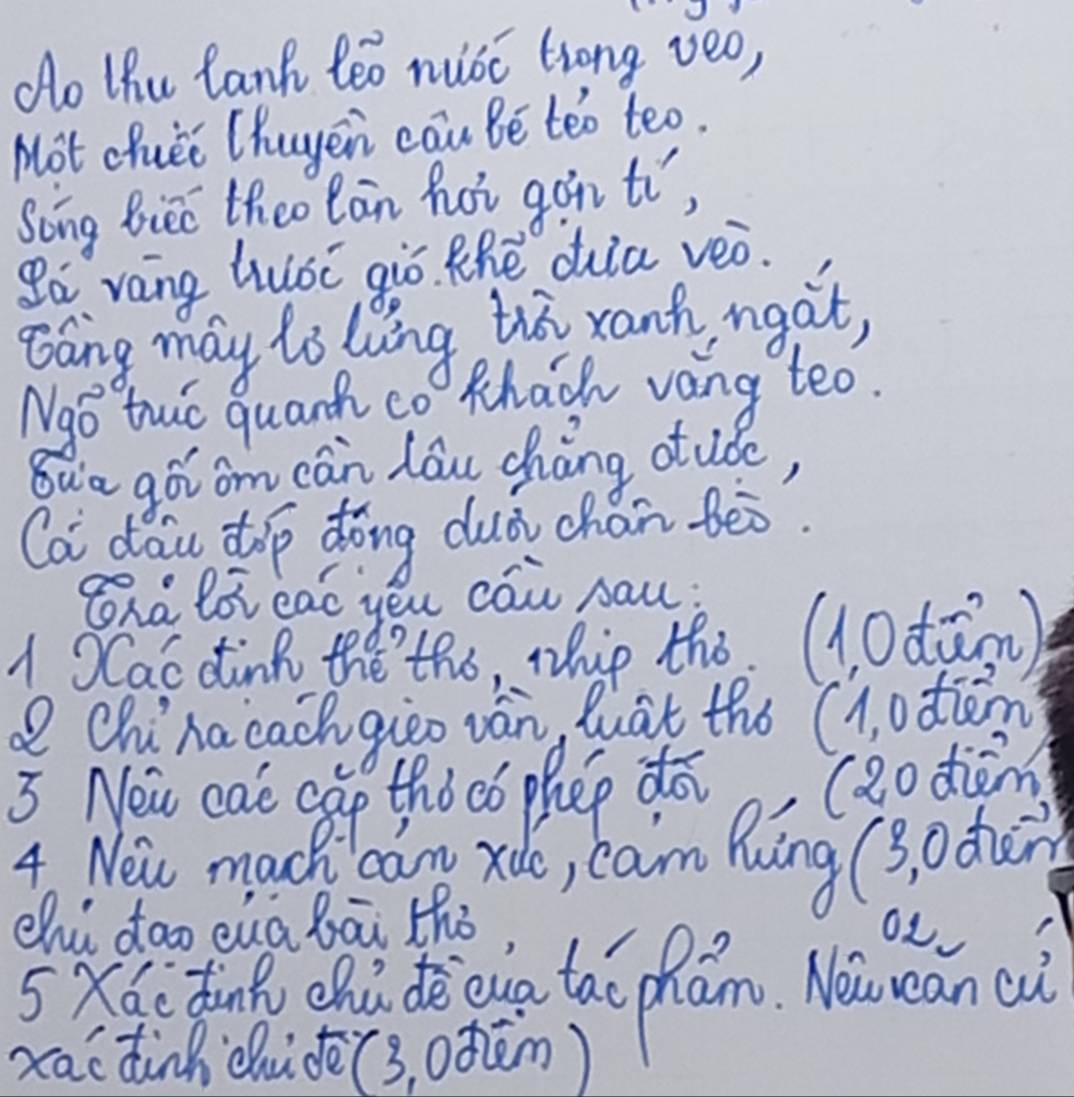 Ao thu lanh lẽo nước trong veo,
Một chiếc thuyền câu bé tẻo teo.
Sóng biếc theo làn hơi gợn tí,
Lá vàng trước gió khẽ đưa vèo.
Tầng mây lơ lửng trời xanh ngắt,
Ngõ trúc quanh co khách vắng teo.
Tựa gối ôm cần lâu chẳng được,
Cá đâu đớp động dưới chân bèo.
Trả lời các yêu cầu sau:
1 Xác định thể thơ, nhịp thơ. (1,0 điểm)
2 Chỉ ra cách gieo vần, luật thơ (1,0 điểm
3 Nêu các cặp thơ có phép đối (2,0 điểm)
4 Nêu mạch cảm xúc, cảm hứng (3,0 điểm
chủ đạo của bài thơ.
5 Xác định chủ đề của tác phẩm. Nêu 02 căn cứ
xác định chủ đề (3,0 điểm)